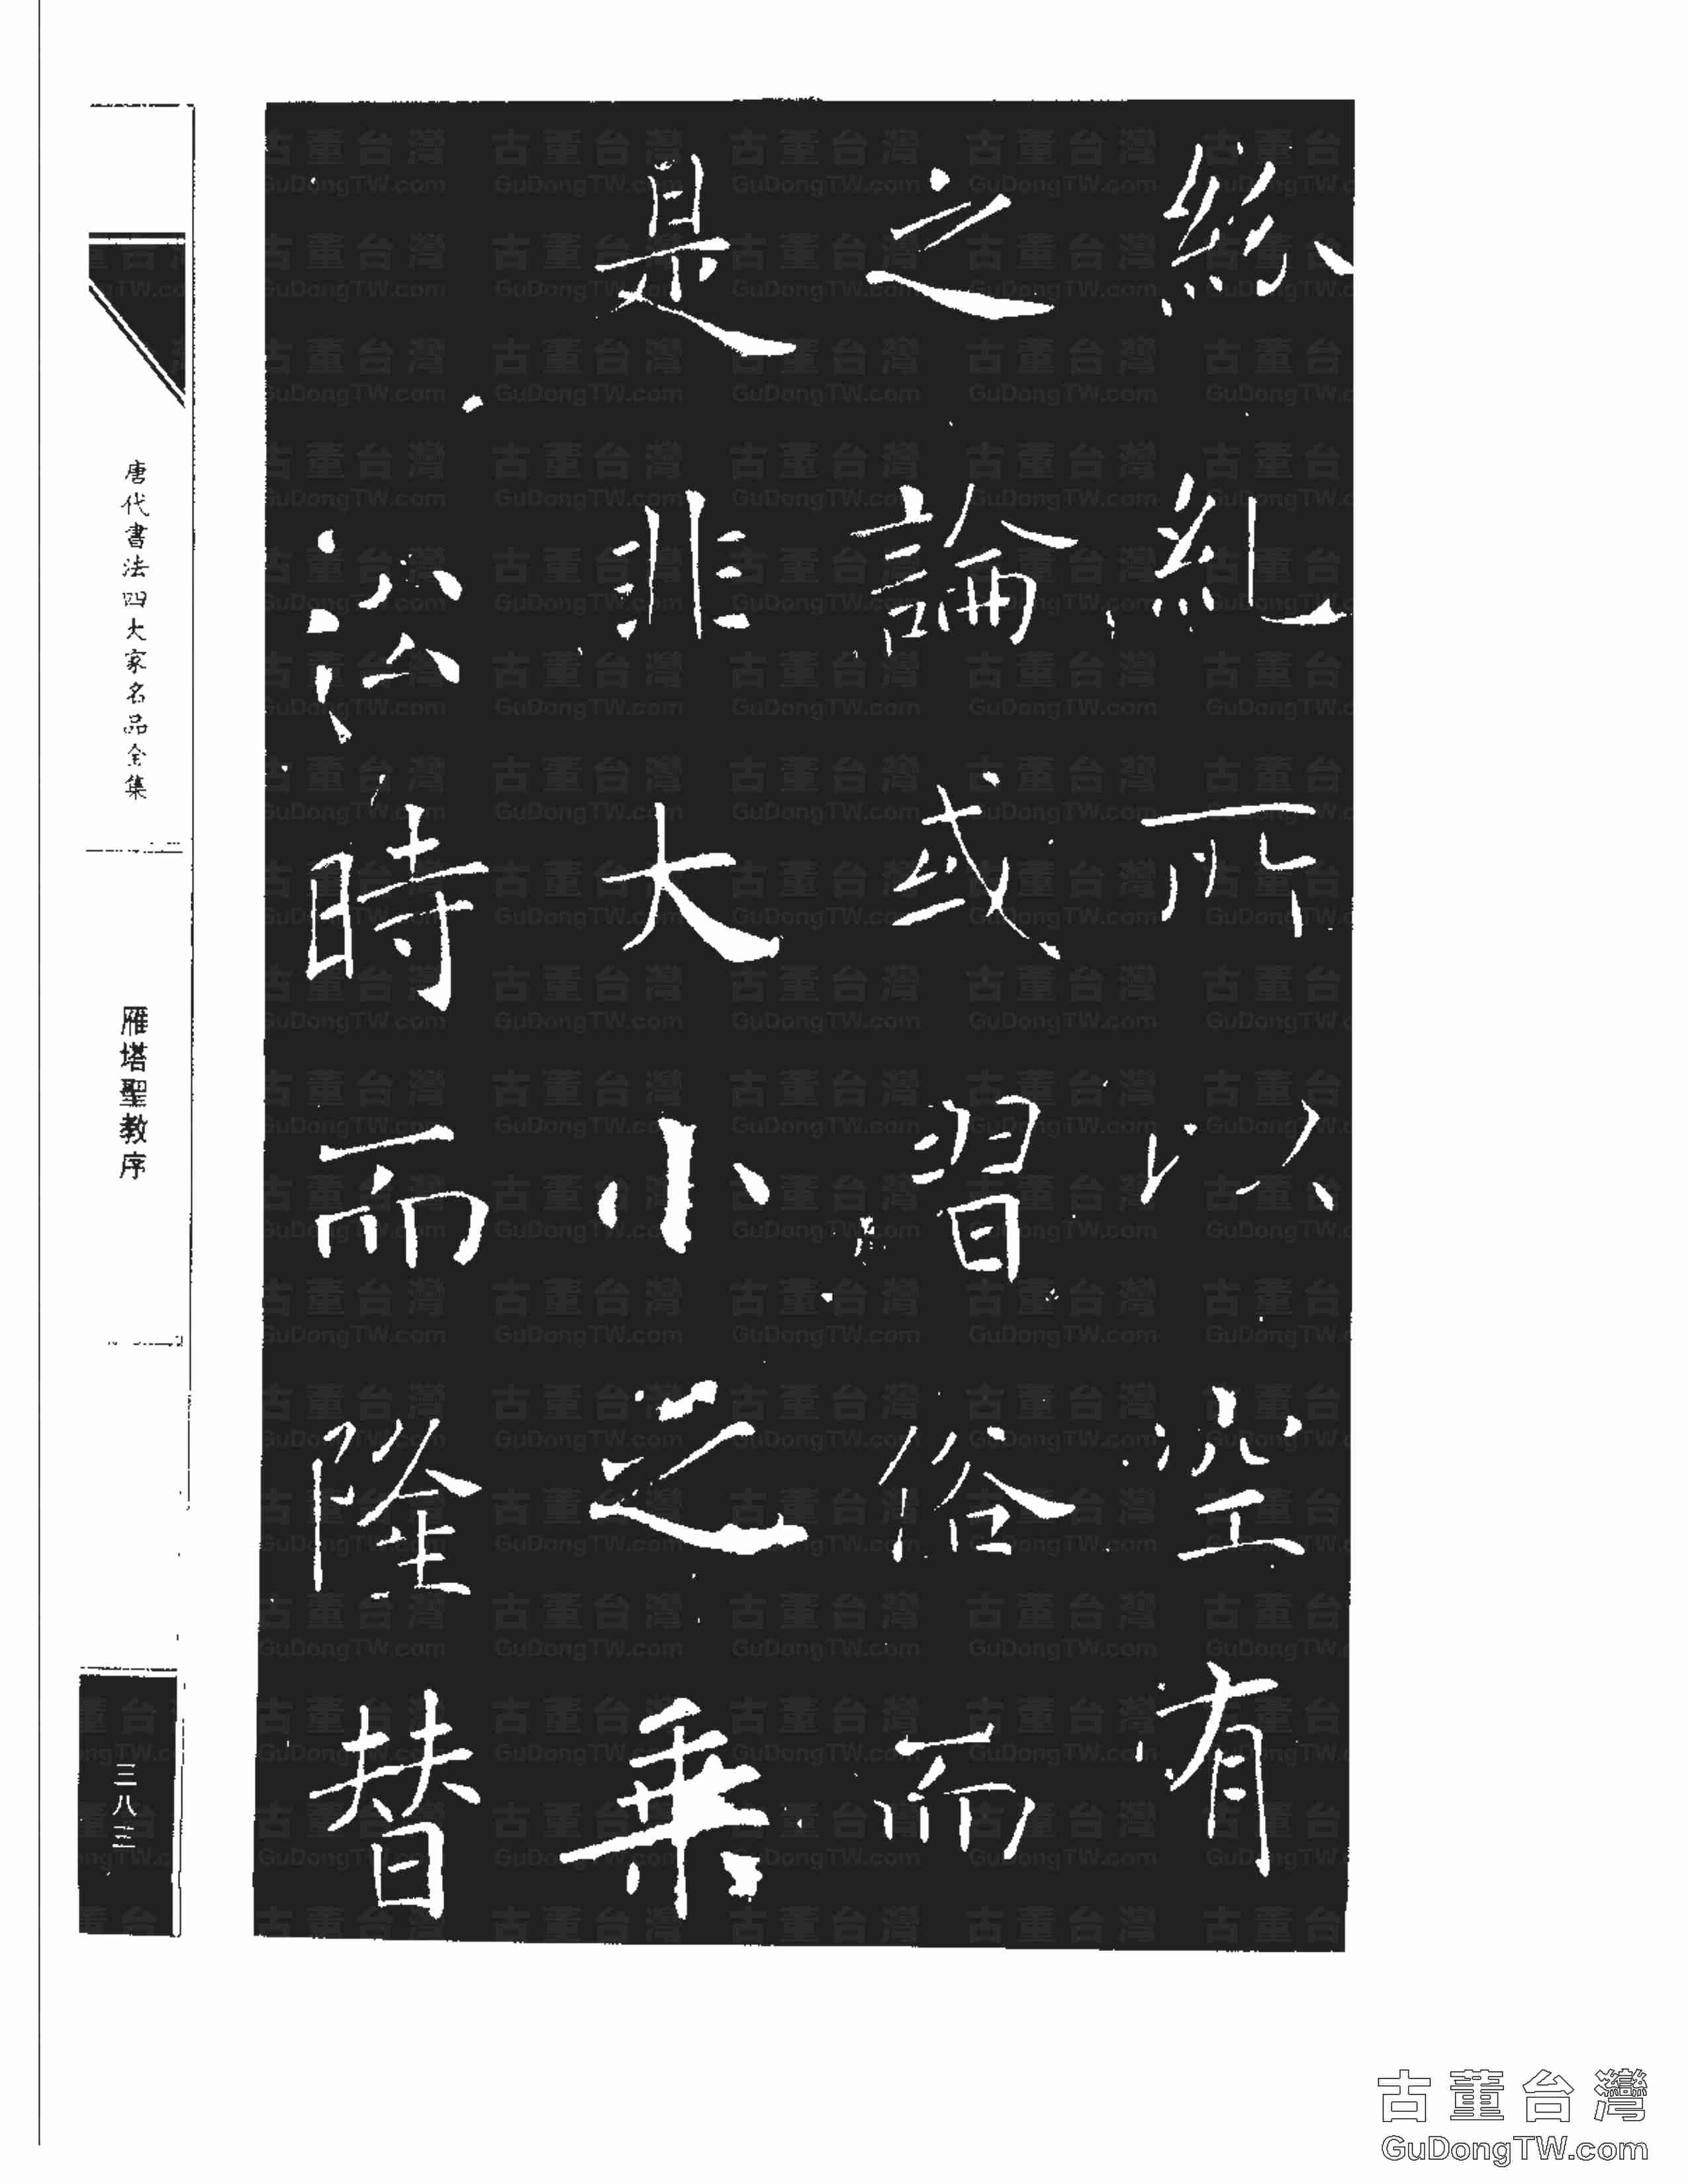 紛糺所以空有
之論或習俗而
是非大小之乘
沿時而隆替
唐代書法四大家名品全集
雁塔聖教序
三八三
古董台灣
GuDongTW.com